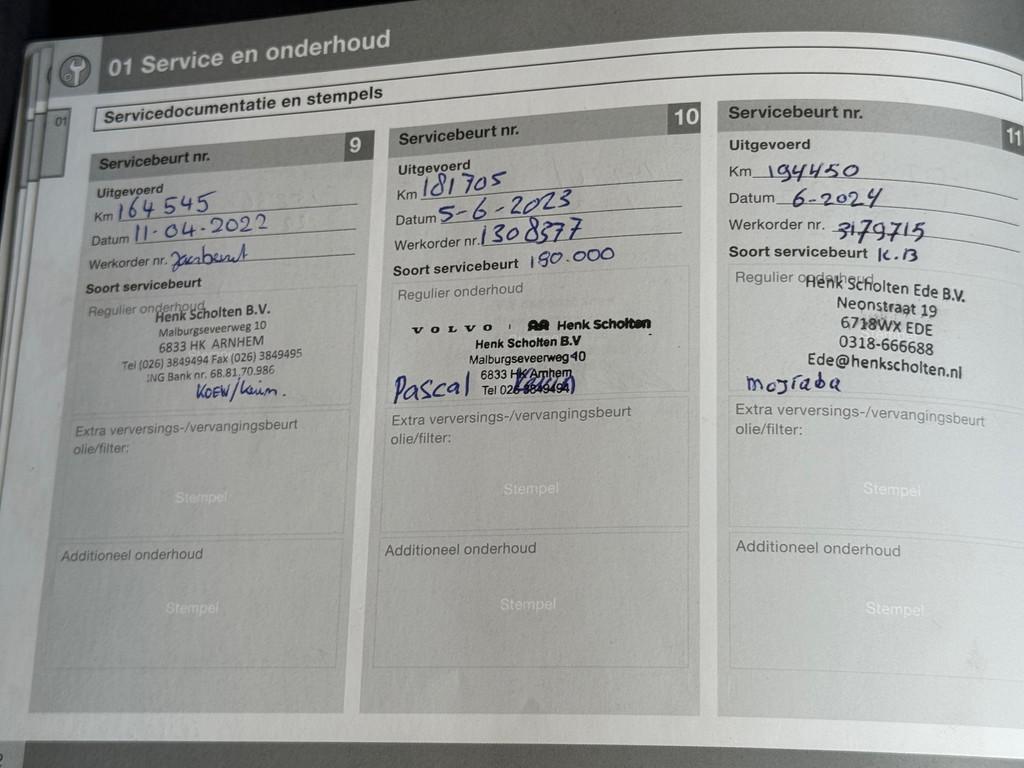 01 Service en onderhoud
01
Servicedocumentatie en stempels
Servicebeurt nr. 9
Uitgevoerd
Km 164 545
Datum 11-04-2022
Werkorder nr. Jaarbeurt
Soort servicebeurt
Regulier onderhoud
Henk Scholten B.V.
Malburgseveerweg 10
6833 HK ARNHEM
Tel (026) 3849494 Fax (026) 3849495
ING Bank nr. 68.81.70.986
KOEW/
Extra verversings-/vervangingsbeurt
olie/filter:
Stempel
Additioneel onderhoud
Stempel
Servicebeurt nr. 10
Uitgevoerd
Km 181705
Datum 5-6-2023
Werkorder nr. 1308377
Soort servicebeurt 190.000
Regulier onderhoud
VOLVO Henk Scholten
Henk Scholten B.V
Malburgseveerweg 10
6833 HK Arnhem
Pascal Tel 026 3849494
Extra verversings-/vervangingsbeurt
olie/filter:
Stempel
Additioneel onderhoud
Stempel
Servicebeurt nr. 11
Uitgevoerd
Km 194450
Datum 6-2024
Werkorder nr. 3179715
Soort servicebeurt K.B
Regulier onderhoud
Henk Scholten Ede B.V.
Neonstraat 19
6718WX EDE
0318-666688
Ede@henkscholten.nl
mojtaba
Extra verversings-/vervangingsbeurt
olie/filter:
Stempel
Additioneel onderhoud
Stempel